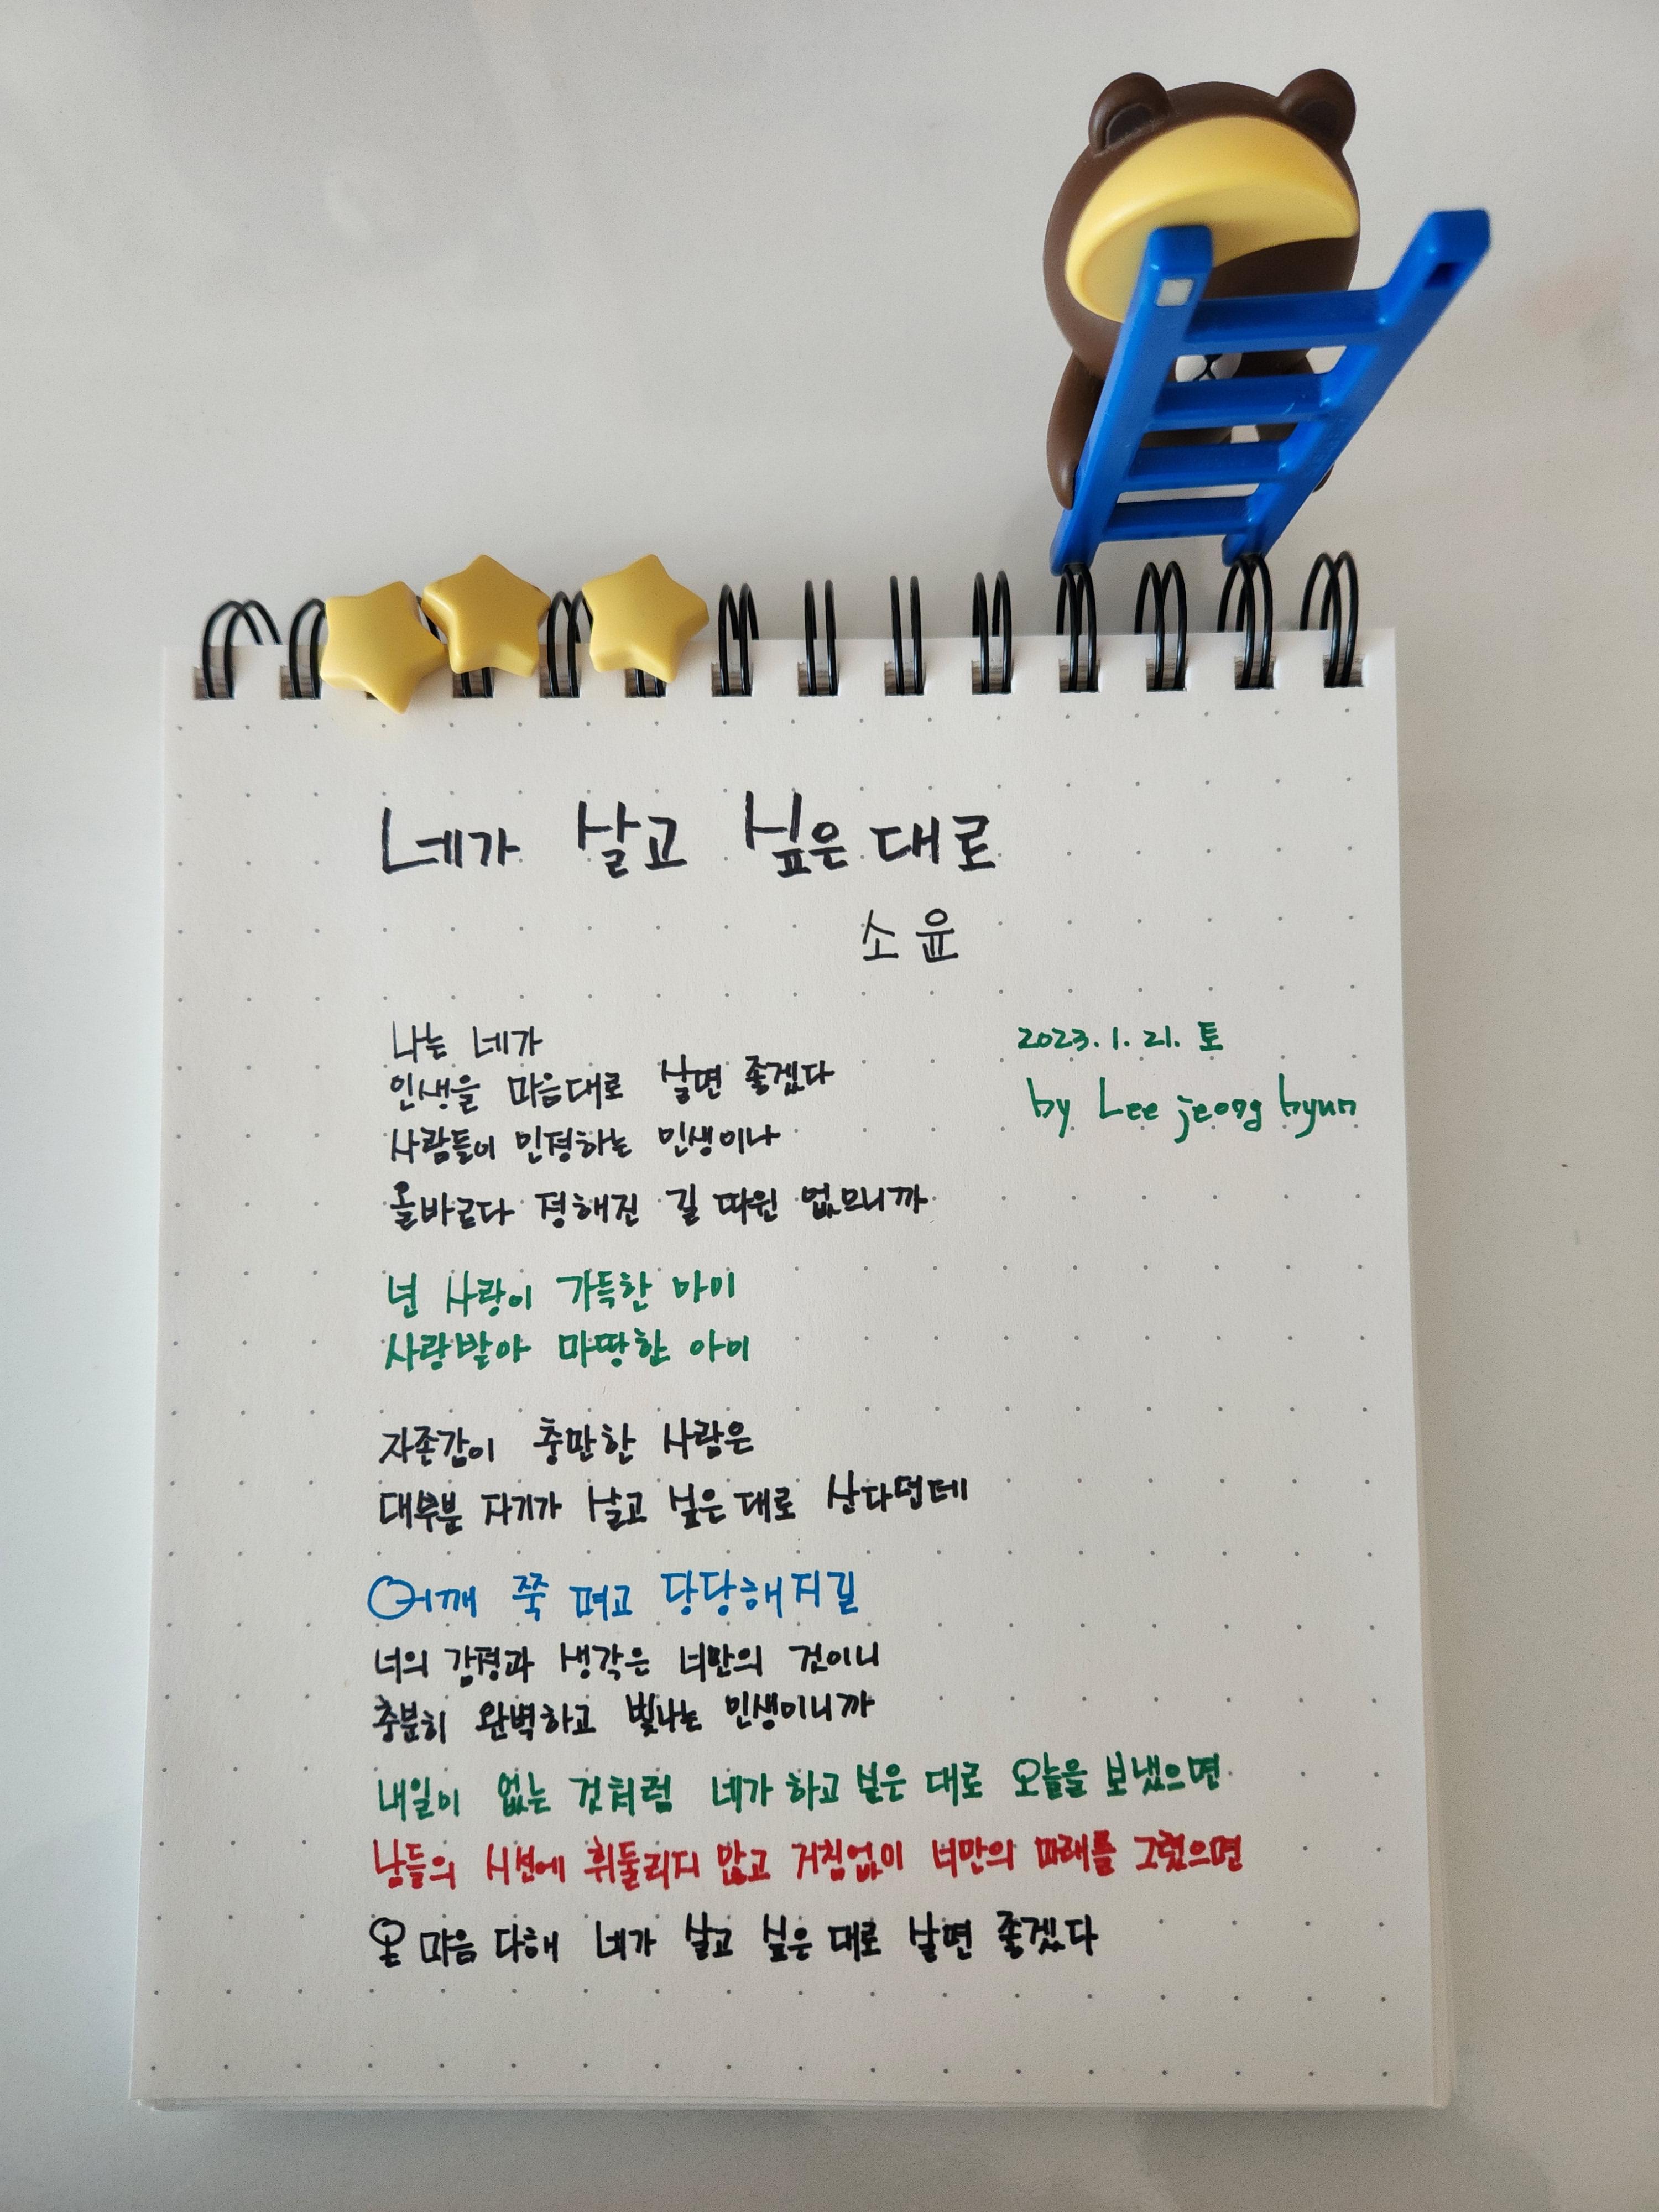 네가 살고 싶은 대로
소윤
2023. 1. 21. 토
by Lee jeong hyun
나는 네가
인생을 마음대로 살면 좋겠다
사람들이 인정하는 인생이나
올바르다 정해진 길 따윈 없으니까
넌 사랑이 가득한 아이
사랑받아 마땅한 아이
자존감이 충만한 사람은
대부분 자기가 살고 싶은 대로 산다던데
어깨 쭉 펴고 당당해지길
너의 감정과 생각은 너만의 것이니
충분히 완벽하고 빛나는 인생이니까
내일이 없는 것처럼 네가 하고 싶은 대로 오늘을 보냈으면
남들의 시선에 휘둘리지 않고 거침없이 너만의 미래를 그렸으면
온 마음 다해 네가 살고 싶은 대로 살면 좋겠다